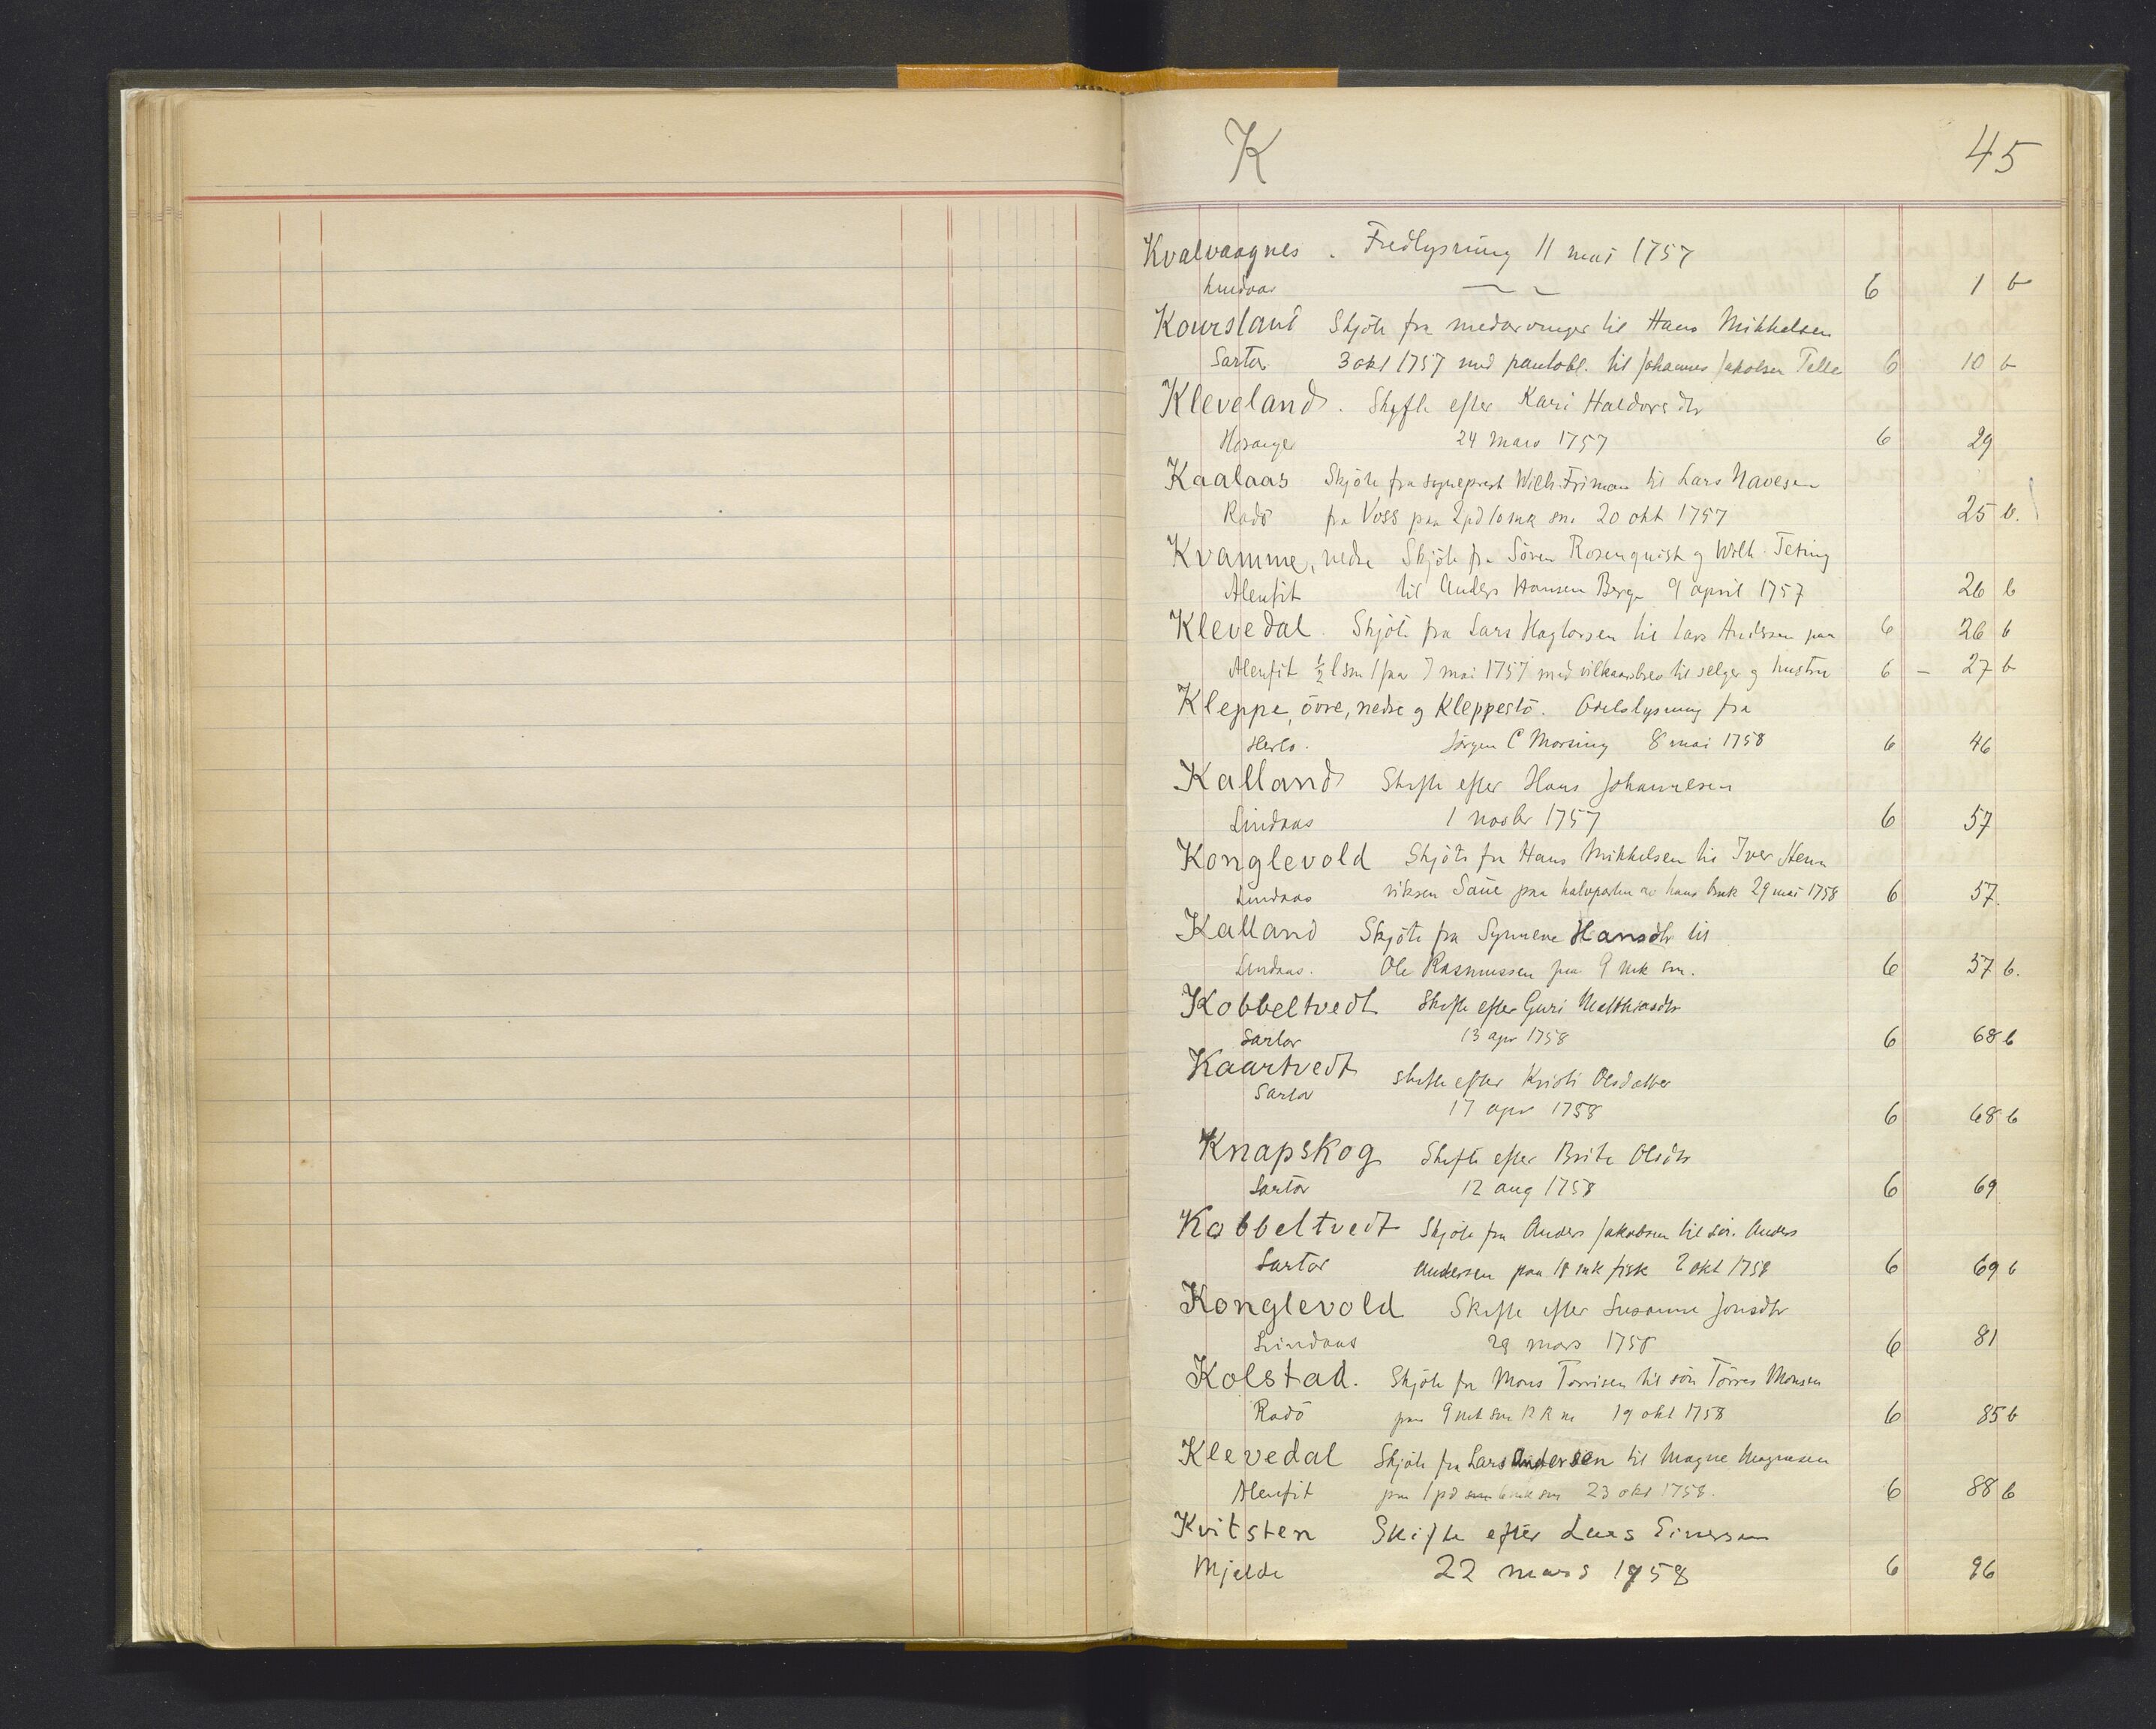 K
45
Kvalvaagnes . Fredlysning 11 mai 1757
Lindaas 6 1 b
Koursland Skjöte fra medarvinger til Hans Mikkelsen
Sartor 3 okt 1757 med pantobl. til Johannes Jakobsen Telle 6 10 b
Kleveland . Skifte efter Kari Haldorsdtr
Hosanger 24 mars 1757 6 29
Kaalaas Skjöte fra sogneprest Wilh. Friman til Lars Navesen
Radö fra Voss paa 2 pd 10 mk sm. 20 okt 1757 25 b.
Kvamme, nedre Skjöte fra Sören Rosenquist og Wilh.
Alenfit til Anders Hansen Berge 9 april 1757 26 b
Klevedal Skjöte fra Lars til Lars Andersen paa 6 26 b
Alenfit ½ l sm 7 mai 1757 med vilkaarsbrev til selger og hustru 6 – 27 b
Kleppe, övre, nedre og Kleppestö. Odelslysning fra
Herlö. Jörgen C Morsing 8 mai 1758 6 46
Kalland Skifte efter Hans Johannesen
Lindaas 1 novbr 1757 6 57
Konglevold Skjöte fra Hans Mikkelsen til Iver Hen
Lindaas riksen Saue paa halvparten av hans bruk 29 mai 1758 6 57.
Kalland Skjöte fra Synneve Hansdtr til
Lindaas. Ole Rasmussen paa 9 mk sm. 6 57 b.
Kobbeltvedt Skifte efter Guri Matthiasdtr
Sartor 13 apr 1758 6 68 b
Kaartvedt skifte efter Kristi Olsdatter
Sartor
17 apr 1758 6 68 b
Knapskog Skifte efter Brite Olsdtr
Sartor 12 aug 1758 6 69
Kobbeltvedt Skjöte fra Anders Jakobsen til sön Anders
Sartor Andersen paa 18 mk fisk 2 okt 1758 6 69 b
Konglevold Skifte efter Susanne Jonsdtr
Lindaas 29 mars 1758 6 81
Kolstad. Skjöte fra Mons Torrisen til sön Törres Monsen
Radö paa 9 mk sm 19 okt 1758 6 85 b
Klevedal Skjöte fra Lars Andersen til Magne Magnesen
Alenfit paa 1 pd 6 mk sm 23 okt 1758. 6 88 b
Kvitsten Skifte efter Lars Einersen
Mjelde 22 mars 1758 6 96